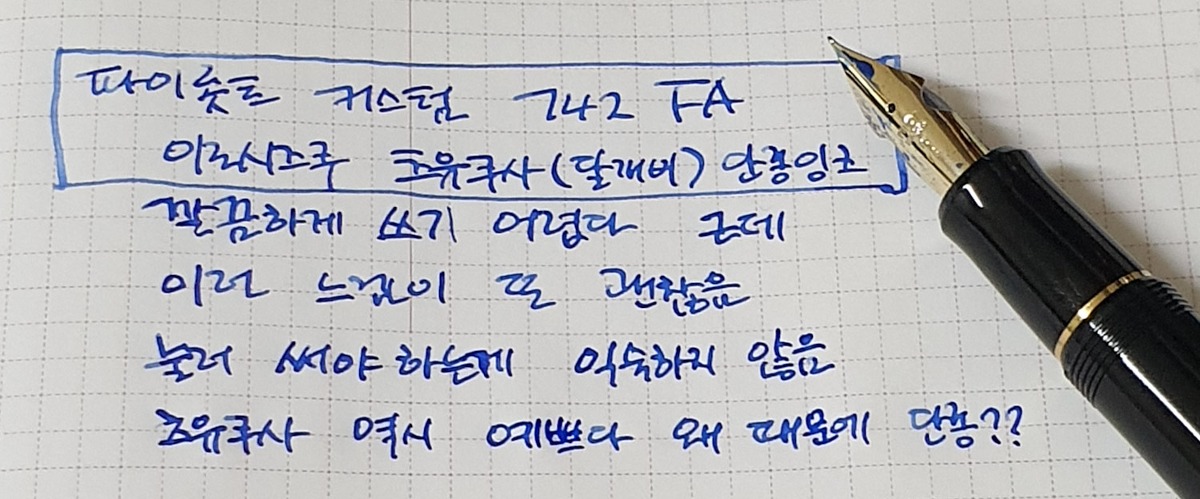 파이롯트 커스텀 742 FA
이로시즈쿠 츠유쿠사(달개비) 단종잉크
깔끔하게 쓰기 어렵다 근데
이런 느낌이 또 괜찮음
눌러 써야 하는게 익숙하지 않음
츠유쿠사 역시 예쁘다 왜 때문에 단종??